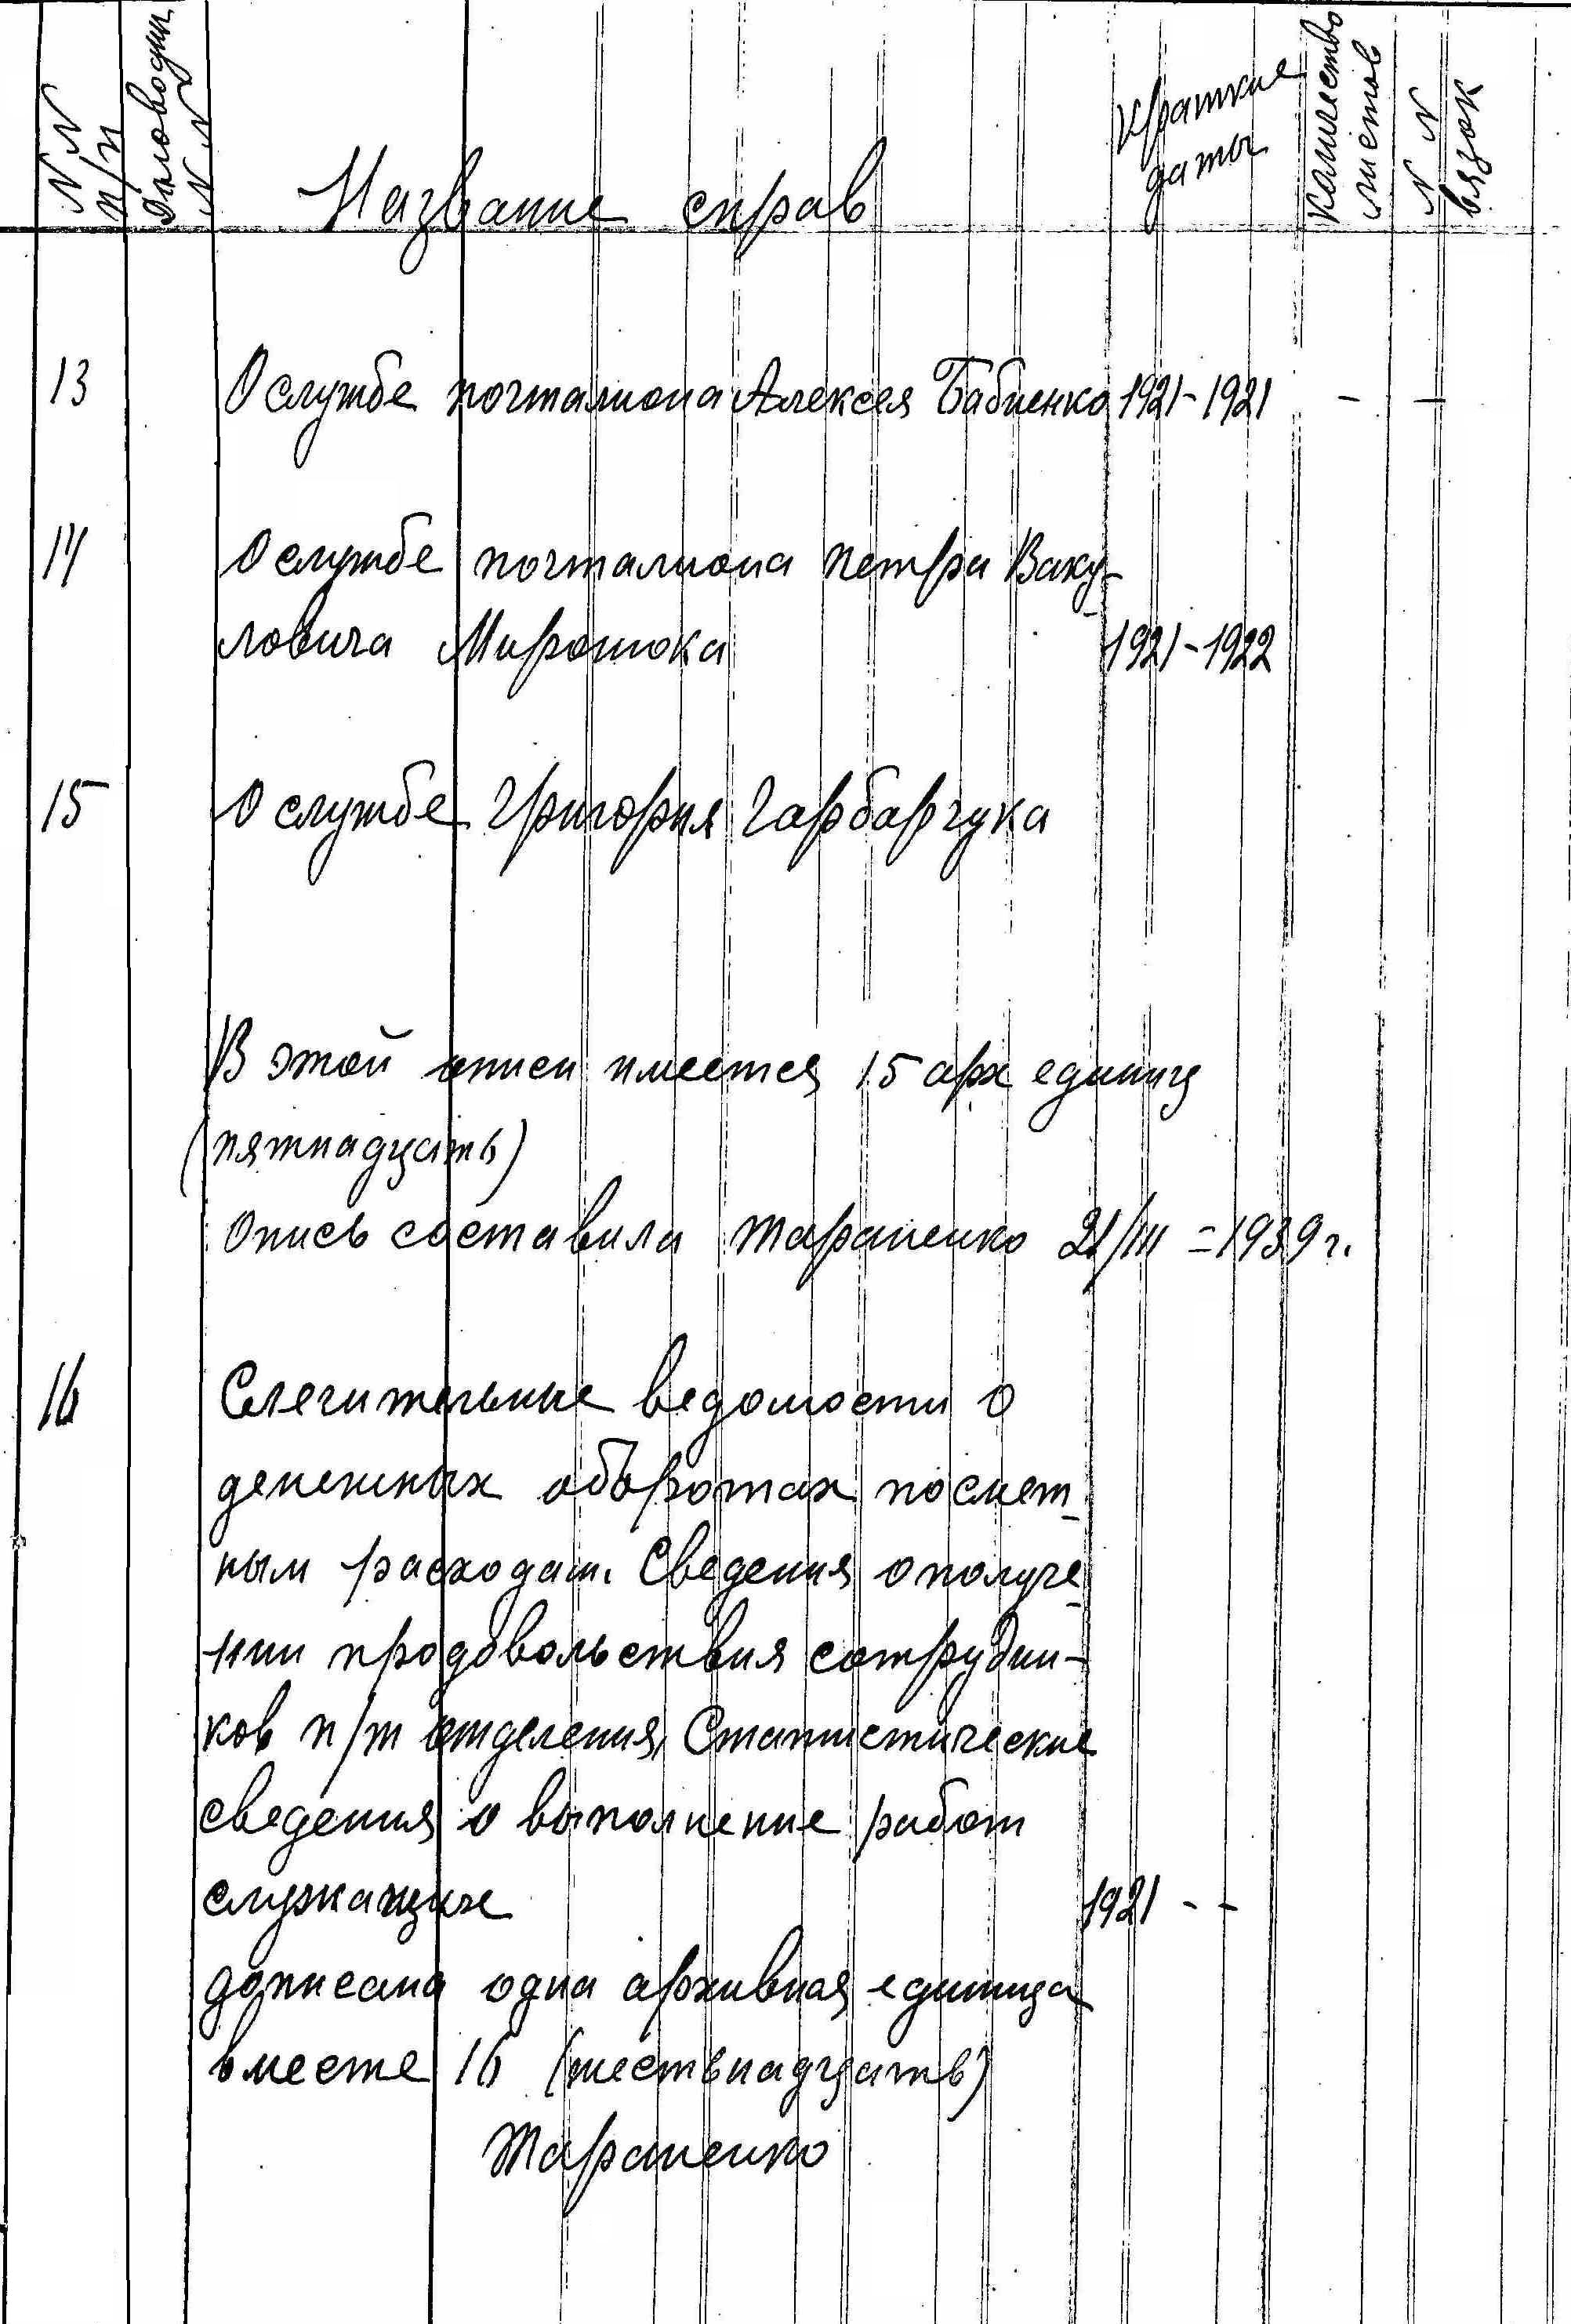 N N п/п
Діловодчі N N
Название справ
Краткие даты
Количество листов
N N вязок
13 О службе почталиона Алексея Бабиенко 1921-1921 - -
14 О службе почталиона Петра Ваку-
ловича Миронюка 1921-1922
15 О службе Григория Гарбарчука
В этой описи имеется 15 арх единиц
(пятнадцать)
Опись составила Тараненко 21/III = 1939 г.
16 Слечительные ведомости о
денежных оборотах по смет-
ным расходам. Сведения о получе-
нии продовольствия сотрудни-
ков п/т отделения, Статистические
сведения о выполнение работ
служащие 1921 - -
дописана одна архивная единица
вместе 16 (шествнадцать)
Тараненко